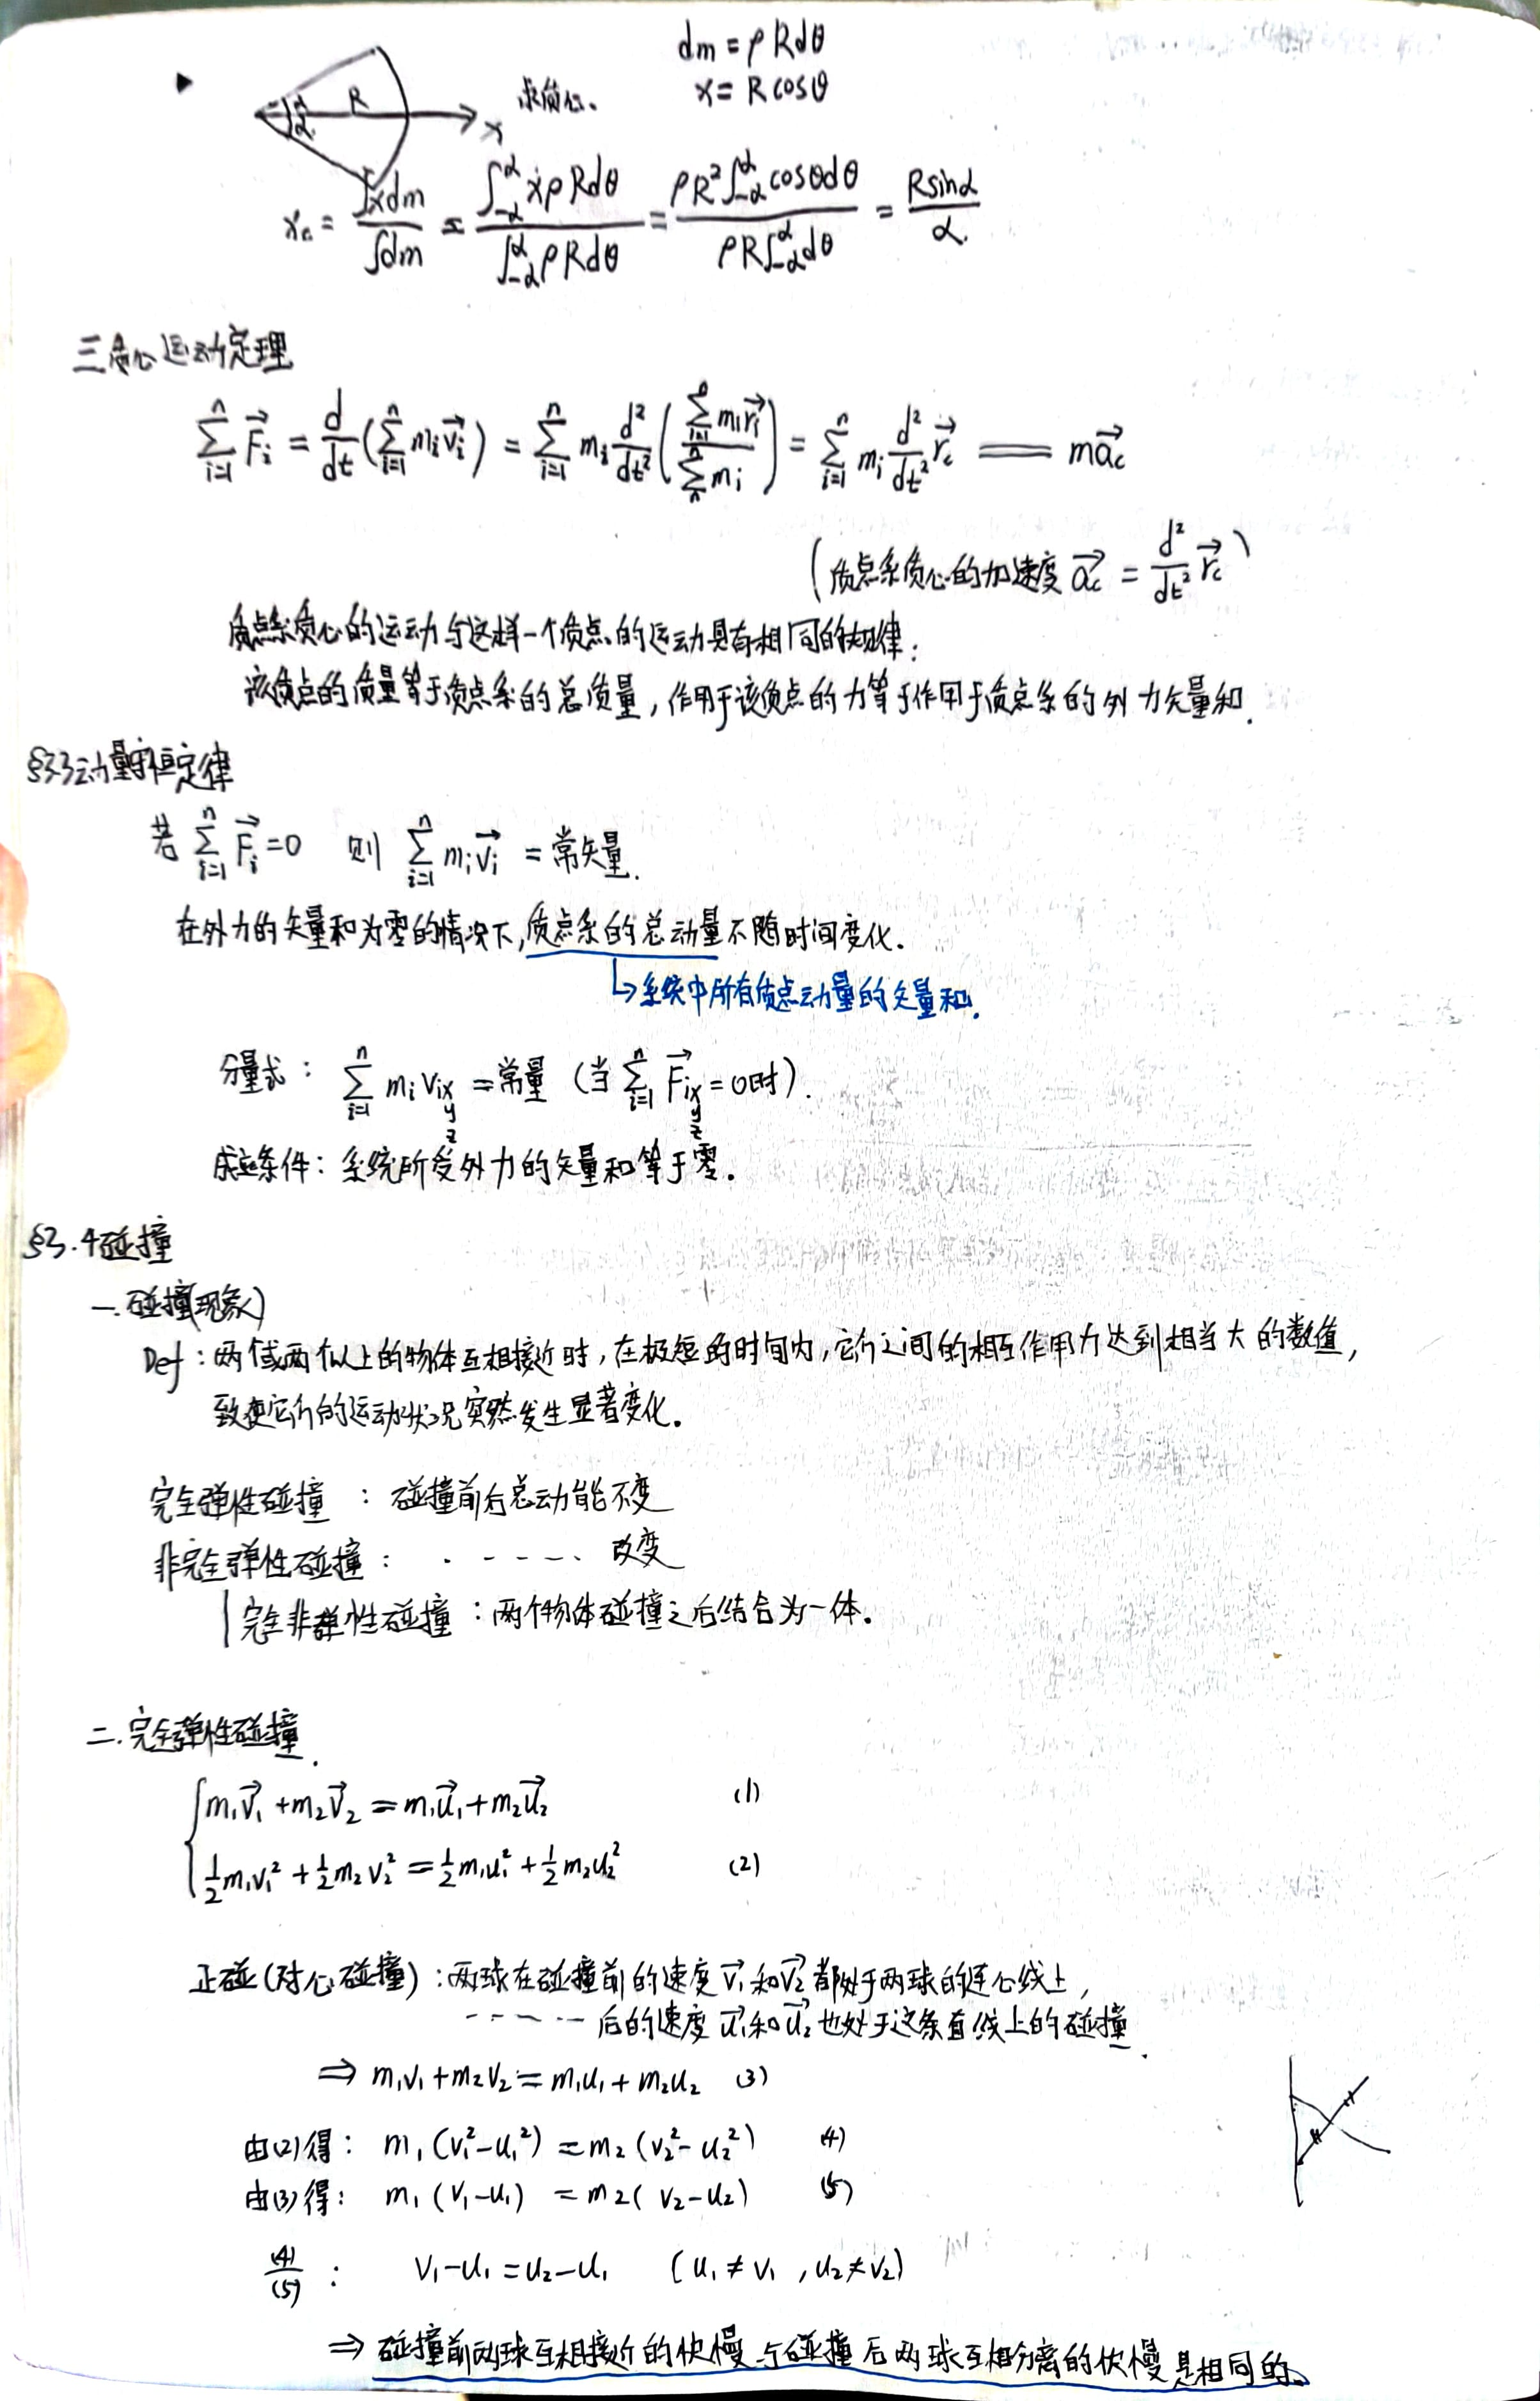 dm = ρRdθ
▶ R α x 求质心. x = Rcosθ
x_c = ∫xdm / ∫dm = ∫_{-α}^{α} xρRdθ / ∫_{-α}^{α} ρRdθ = ρR²∫_{-α}^{α} cosθdθ / ρR∫_{-α}^{α} dθ = Rsinα / α.
三.质心运动定理
\sum_{i=1}^{n} \vec{F_i} = \frac{d}{dt}(\sum_{i=1}^{n} m_i\vec{v_i}) = \sum_{i=1}^{n} m_i \frac{d²}{dt²}(\frac{\sum_{i=1}^{n} m_i\vec{r_i}}{\sum_{n} m_i}) = \sum_{i=1}^{n} m_i \frac{d²}{dt²}\vec{r_c} = m\vec{a_c}
(质点系质心的加速度 \vec{a_c} = \frac{d²}{dt²}\vec{r_c})
质点系质心的运动与这样一个质点的运动具有相同的规律:
该质点的质量等于质点系的总质量,作用于该质点的力等于作用于质点系的外力矢量和.
§3.3动量守恒定律
若 \sum_{i=1}^{n} \vec{F_i} = 0 则 \sum_{i=1}^{n} m_i\vec{v_i} = 常矢量.
在外力的矢量和为零的情况下,质点系的总动量不随时间变化.
↳系统中所有质点动量的矢量和.
分量式: \sum_{i=1}^{n} m_i v_{ix} = 常量 (当 \sum_{i=1}^{n} \vec{F}_{ix} = 0时).
y y
z z
成立条件: 系统所受外力的矢量和等于零.
§3.4碰撞
一.碰撞(现象)
Def: 两个或两个以上的物体互相接近时,在极短的时间内,它们之间的相互作用力达到相当大的数值,
致使它们的运动状况突然发生显著变化.
完全弹性碰撞 : 碰撞前后总动能不变
非完全弹性碰撞: ····· 改变
完全非弹性碰撞: 两个物体碰撞之后结合为一体.
二.完全弹性碰撞.
m₁\vec{v₁} + m₂\vec{v₂} = m₁\vec{u₁} + m₂\vec{u₂} (1)
½m₁v₁² + ½m₂v₂² = ½m₁u₁² + ½m₂u₂² (2)
正碰(对心碰撞): 两球在碰撞前的速度\vec{v₁}和\vec{v₂}都处于两球的连心线上,
····· 后的速度\vec{u₁}和\vec{u₂}也处于这条直线上的碰撞.
⇒ m₁v₁ + m₂v₂ = m₁u₁ + m₂u₂ (3)
由(2)得: m₁(v₁²-u₁²) = m₂(v₂²-u₂²) (4)
由(3)得: m₁(v₁-u₁) = m₂(v₂-u₂) (5)
(4)/(5) : v₁-u₁ = u₂-u₁ (u₁≠v₁, u₂≠v₂)
⇒ 碰撞前两球互相接近的快慢与碰撞后两球互相分离的快慢是相同的.